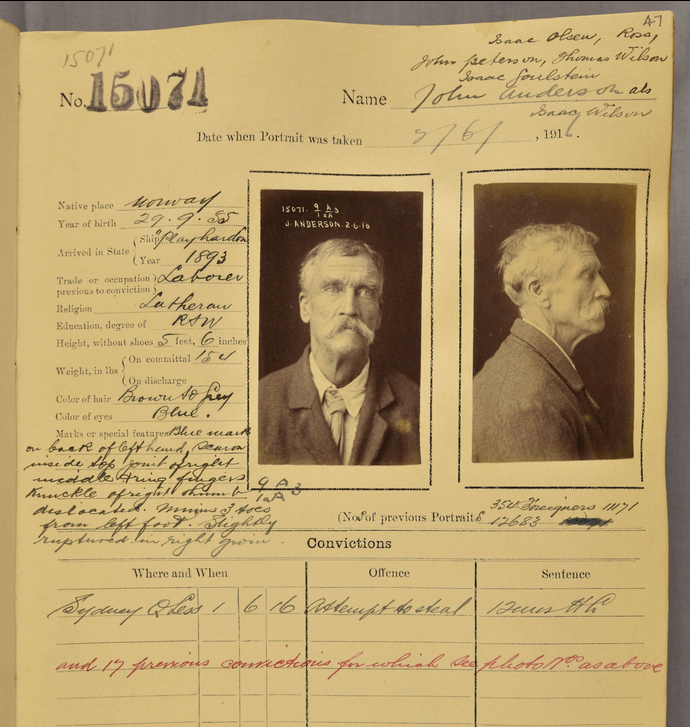 47
15071
No. 15071
Isaac Olsen, Ross,
John Peterson, Thomas Wilson
Isaac Goulstein
Name John Anderson als
Isaac Wilson
Date when Portrait was taken 2/6/, 1916.
Native place Norway
Year of birth 29.9.55
Arrived in State { Ship "
Year 1893
Trade or occupation previous to conviction } Laborer
Religion Lutheran
Education, degree of R&W
Height, without shoes 5 feet, 6 inches
Weight, in lbs { On committal 154
On discharge
Color of hair Brown to Grey
Color of eyes Blue.
Marks or special features Blue mark
on back of left hand, scar on
inside top joint of right
middle & ring fingers
Knuckle of right thumb
dislocated. Minus 3 toes
from left foot. Slightly
ruptured in right groin.
15071. 9 A 3
10A
J. ANDERSON. 2.6.16
9 A 3
10A
(Nos of previous Portraits 356 Foreigners 11171
12683
Convictions
Where and When Offence Sentence
Sydney Q Sess 1 6 16 Attempt to steal 12 mos HL
and 17 previous convictions for which see photo Nos. as above